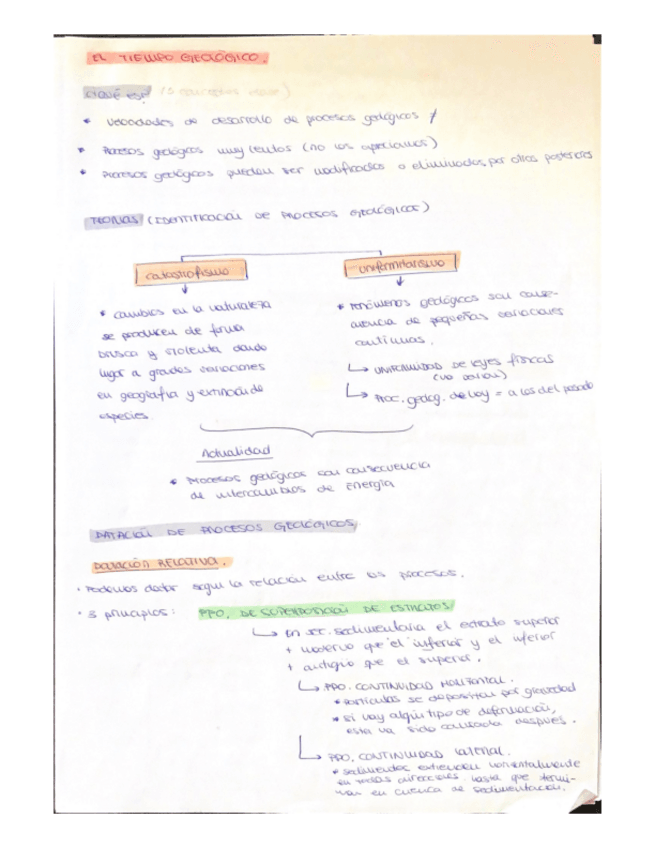 EL TIEMPO GEOLÓGICO.
¿QUÉ ES? (3 conceptos clave)
* Velocidades de desarrollo de procesos geológicos ≠
* Procesos geológicos muy lentos (no los apreciamos)
* Procesos geológicos pueden ser modificados o eliminados por otros posteriores
TEORIAS (IDENTIFICACIÓN DE PROCESOS GEOLÓGICOS)
catastrofismo
uniformitarismo
* cambios en la naturaleza
se producen de forma
brusca y violenta dando
lugar a grades variaciones
en geografia y extinción de
especies.
* Fenómenos geológicos son conse-
cuencia de pequeñas variaciones
continuas.
↳ UNIFORMIDAD DE leyes físicas
(no varían)
↳ Proc. geolog. de hoy = a los del pasado
Actualidad
* Procesos geológicos son consecuencia
de intercambios de Energía
DATACIÓN DE PROCESOS GEOLÓGICOS
DATACIÓN RELATIVA.
· Podemos datar según la relación entre los procesos.
· 3 principios: PPO. DE SUPERPOSICIÓN DE ESTRATOS
↳ En sec. sedimentaria el estrato superior
+ moderno que el inferior y el inferior
+ antiguo que el superior.
↳ PPO. CONTINUIDAD HORIZONTAL.
* Partículas se depositan por gravedad
* si hay algún tipo de deformación,
esta ha sido causada después.
↳ PPO. CONTINUIDAD lateral.
* sedimentos extienden horizontalmente
en todas direcciones hasta que termi-
nan en cuenca de sedimentación.